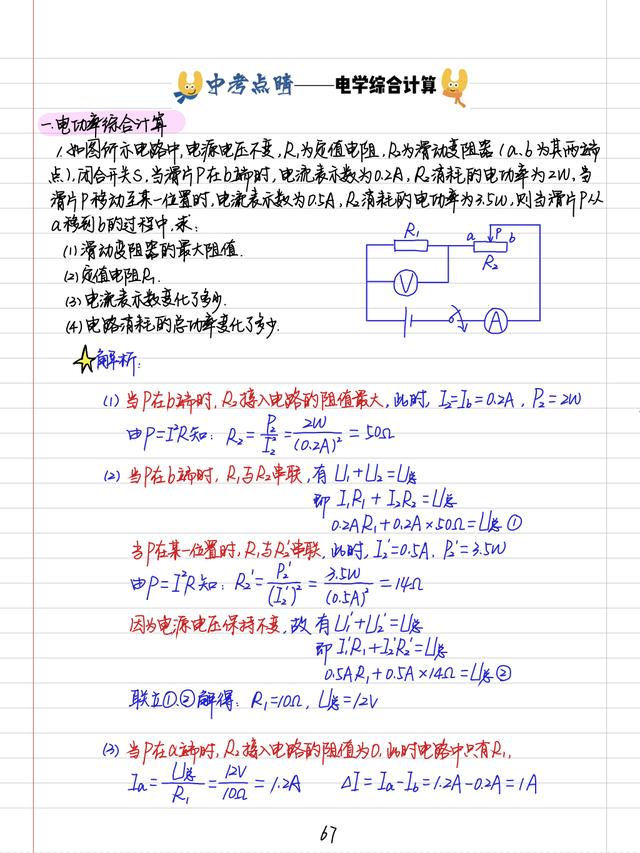 中考点晴——电学综合计算
一.电功率综合计算
1.如图所示电路中,电源电压不变,R₁为定值电阻,R₂为滑动变阻器(a、b为其两端
点),闭合开关S,当滑片P在b端时,电流表示数为0.2A,R₂消耗的电功率为2W,当
滑片P移动至某一位置时,电流表示数为0.5A,R₂消耗的电功率为3.5W,则当滑片P从
a移到b的过程中,求:
(1)滑动变阻器的最大阻值.
(2)定值电阻R₁.
(3)电流表示数变化了多少.
(4)电路消耗的总功率变化了多少.
R₁ a P b
R₂
V
A
解析:
(1) 当P在b端时,R₂接入电路的阻值最大,此时,I₂=I_b=0.2A,P₂=2W
由P=I²R知: R₂=P₂/I₂²=2W/(0.2A)²=50Ω
(2) 当P在b端时,R₁与R₂串联,有U₁+U₂=U总
即 I₁R₁+I₂R₂=U总
0.2AR₁+0.2A×50Ω=U总①
当P在某一位置时,R₁与R₂'串联,此时,I₂'=0.5A,P₂'=3.5W
由P=I²R知: R₂'=P₂'/(I₂')²=3.5W/(0.5A)²=14Ω
因为电源电压保持不变,故有U₁'+U₂'=U总
即 I₁'R₁+I₂'R₂'=U总
0.5AR₁+0.5A×14Ω=U总②
联立①.②解得: R₁=10Ω, U总=12V
(3) 当P在a端时,R₂接入电路的阻值为0,此时电路中只有R₁,
Ia=U总/R₁=12V/10Ω=1.2A ΔI=Ia-Ib=1.2A-0.2A=1A
67